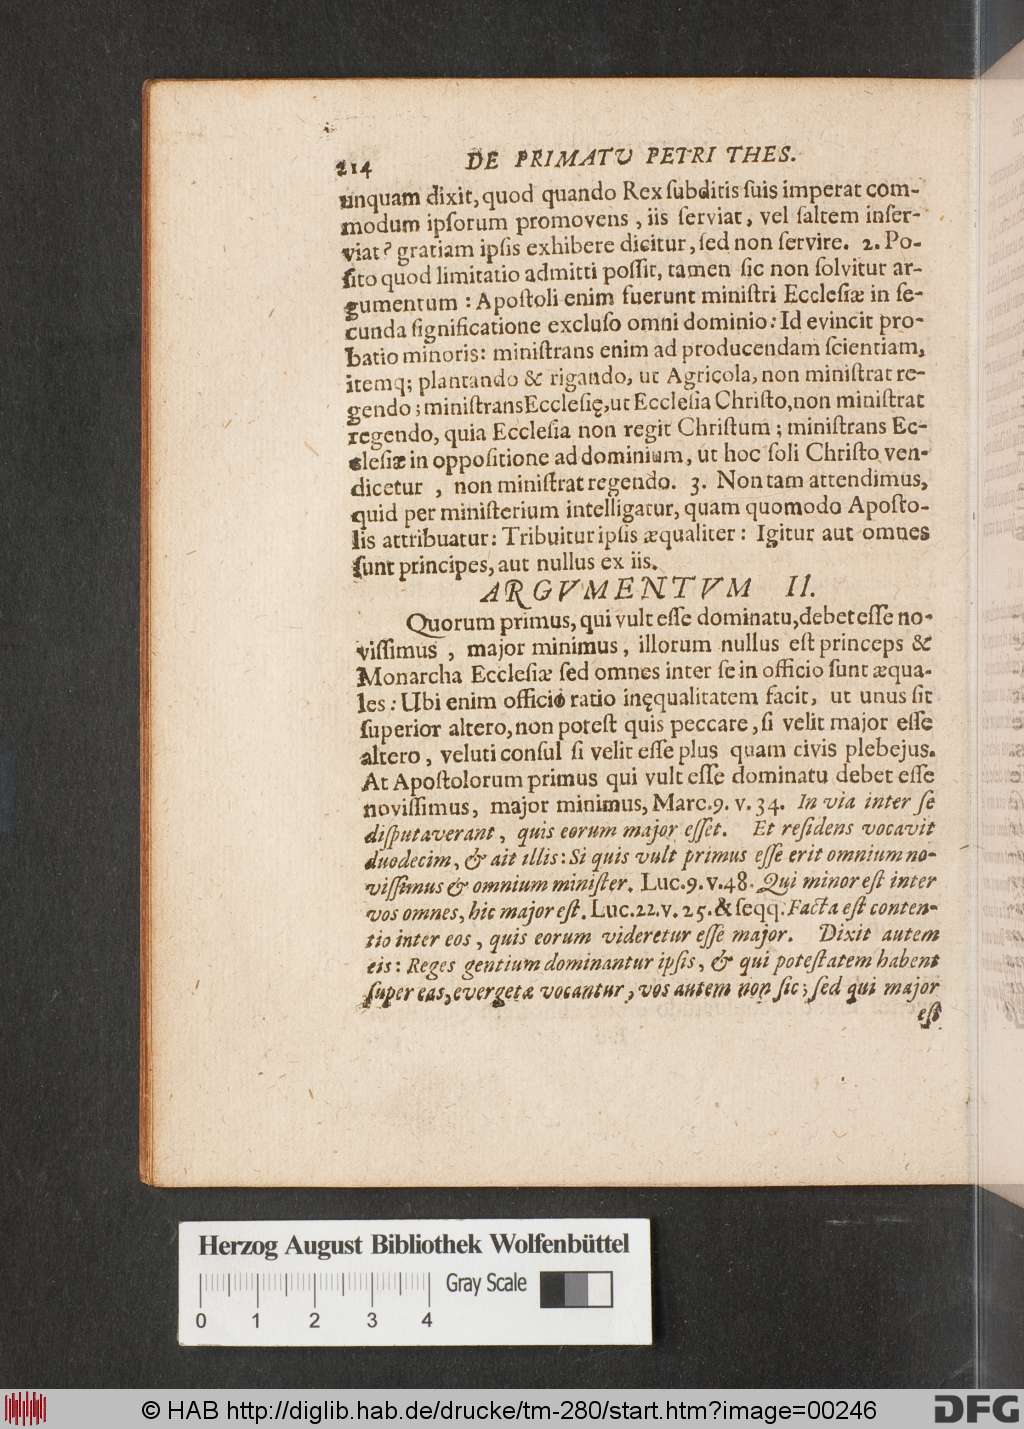 214 DE PRIMATU PETRI THES.
unquam dixit, quod quando Rex ſubditis ſuis imperat com-
modum ipſorum promovens, iis ſerviat, vel ſaltem inſer-
viat? gratiam ipſis exhibere dicitur, ſed non ſervire. 2. Po-
ſito quod limitatio admitti poſſit, tamen ſic non ſolvitur ar-
gumentum: Apoſtoli enim fuerunt miniſtri Eccleſiæ in ſe-
cunda ſignificatione excluſo omni dominio: Id evincit pro-
batio minoris: miniſtrans enim ad producendam ſcientiam,
itemq; plantando & rigando, ut Agricola, non miniſtrat re-
gendo; miniſtrans Eccleſię, ut Eccleſia Chriſto, non miniſtrat
regendo, quia Eccleſia non regit Chriſtum; miniſtrans Ec-
cleſiæ in oppoſitione ad dominium, ut hoc ſoli Chriſto ven-
dicetur, non miniſtrat regendo. 3. Non tam attendimus,
quid per miniſterium intelligatur, quam quomodo Apoſto-
lis attribuatur: Tribuitur ipſis æqualiter: Igitur aut omnes
ſunt principes, aut nullus ex iis.
ARGVMENTVM II.
Quorum primus, qui vult eſſe dominatu, debet eſſe no-
viſſimus, major minimus, illorum nullus eſt princeps &
Monarcha Eccleſiæ ſed omnes inter ſe in officio ſunt æqua-
les: Ubi enim officiô ratio inęqualitatem facit, ut unus ſit
ſuperior altero, non poteſt quis peccare, ſi velit major eſſe
altero, veluti conſul ſi velit eſſe plus quam civis plebejus.
At Apoſtolorum primus qui vult eſſe dominatu debet eſſe
noviſſimus, major minimus, Marc. 9. v. 34. In via inter ſe
diſputaverant, quis eorum major eſſet. Et reſidens vocavit
duodecim, & ait illis: Si quis vult primus eſſe erit omnium no-
viſſimus & omnium miniſter. Luc. 9. v. 48. Qui minor eſt inter
vos omnes, hic major eſt. Luc. 22. v. 25. & ſeqq. Facta eſt conten-
tio inter eos, quis eorum videretur eſſe major. Dixit autem
eis: Reges gentium dominantur ipſis, & qui poteſtatem habent
ſuper eas, evergetæ vocantur, vos autem non ſic; ſed qui major
eſt
Herzog August Bibliothek Wolfenbüttel
Gray Scale
0 1 2 3 4
© HAB http://diglib.hab.de/drucke/tm-280/start.htm?image=00246
DFG